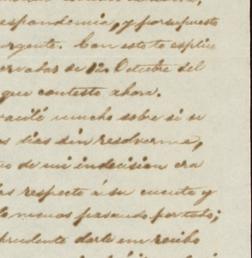 espondencia, y por supuesto
urgente. Con esto te esplico
ervadas de 12 Octubre del
que contesto ahora.
vacilé mucho sobre si se
os dias sin resolverme,
vo de mi indecision era
las respecto á su cuenta y
lo menos pasando por todo;
prudente darle un recibo